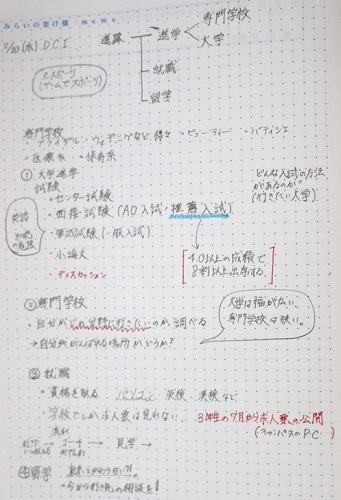 みらいの架け橋 memo
(水) D.C.I.
進路 進学 専門学校
大学
就職
留学
eスポーツ
(ゲームでスポーツ)
専門学校
・ブライダル・ウェディングなど、様々 ・ビューティー ・パティシエ
・医療系 ・保育系
① 大学進学
試験
・センター試験
・面接試験 (AO入試・推薦入試)
・筆記試験 (一般入試)
・小論文
・ディスカッション
どんな入試の方法
があるのか
(行きたい大学)
英語
4.0以上の成績で
8割以上出席する。
② 専門学校
・自分がどの分野に行きたいのか調べる
→自分ががんばれる場所かどうか?
大学は幅が広い、
専門学校は狭い。
③ 就職
・資格を取る パソコン 英検 漢検 など
・学校でしか求人票は見れない。 3年生の7月から求人票の公開
(キャンパスのPC)
→ コーチ → 見学 →
④ 留学
今から行き先の相談を!